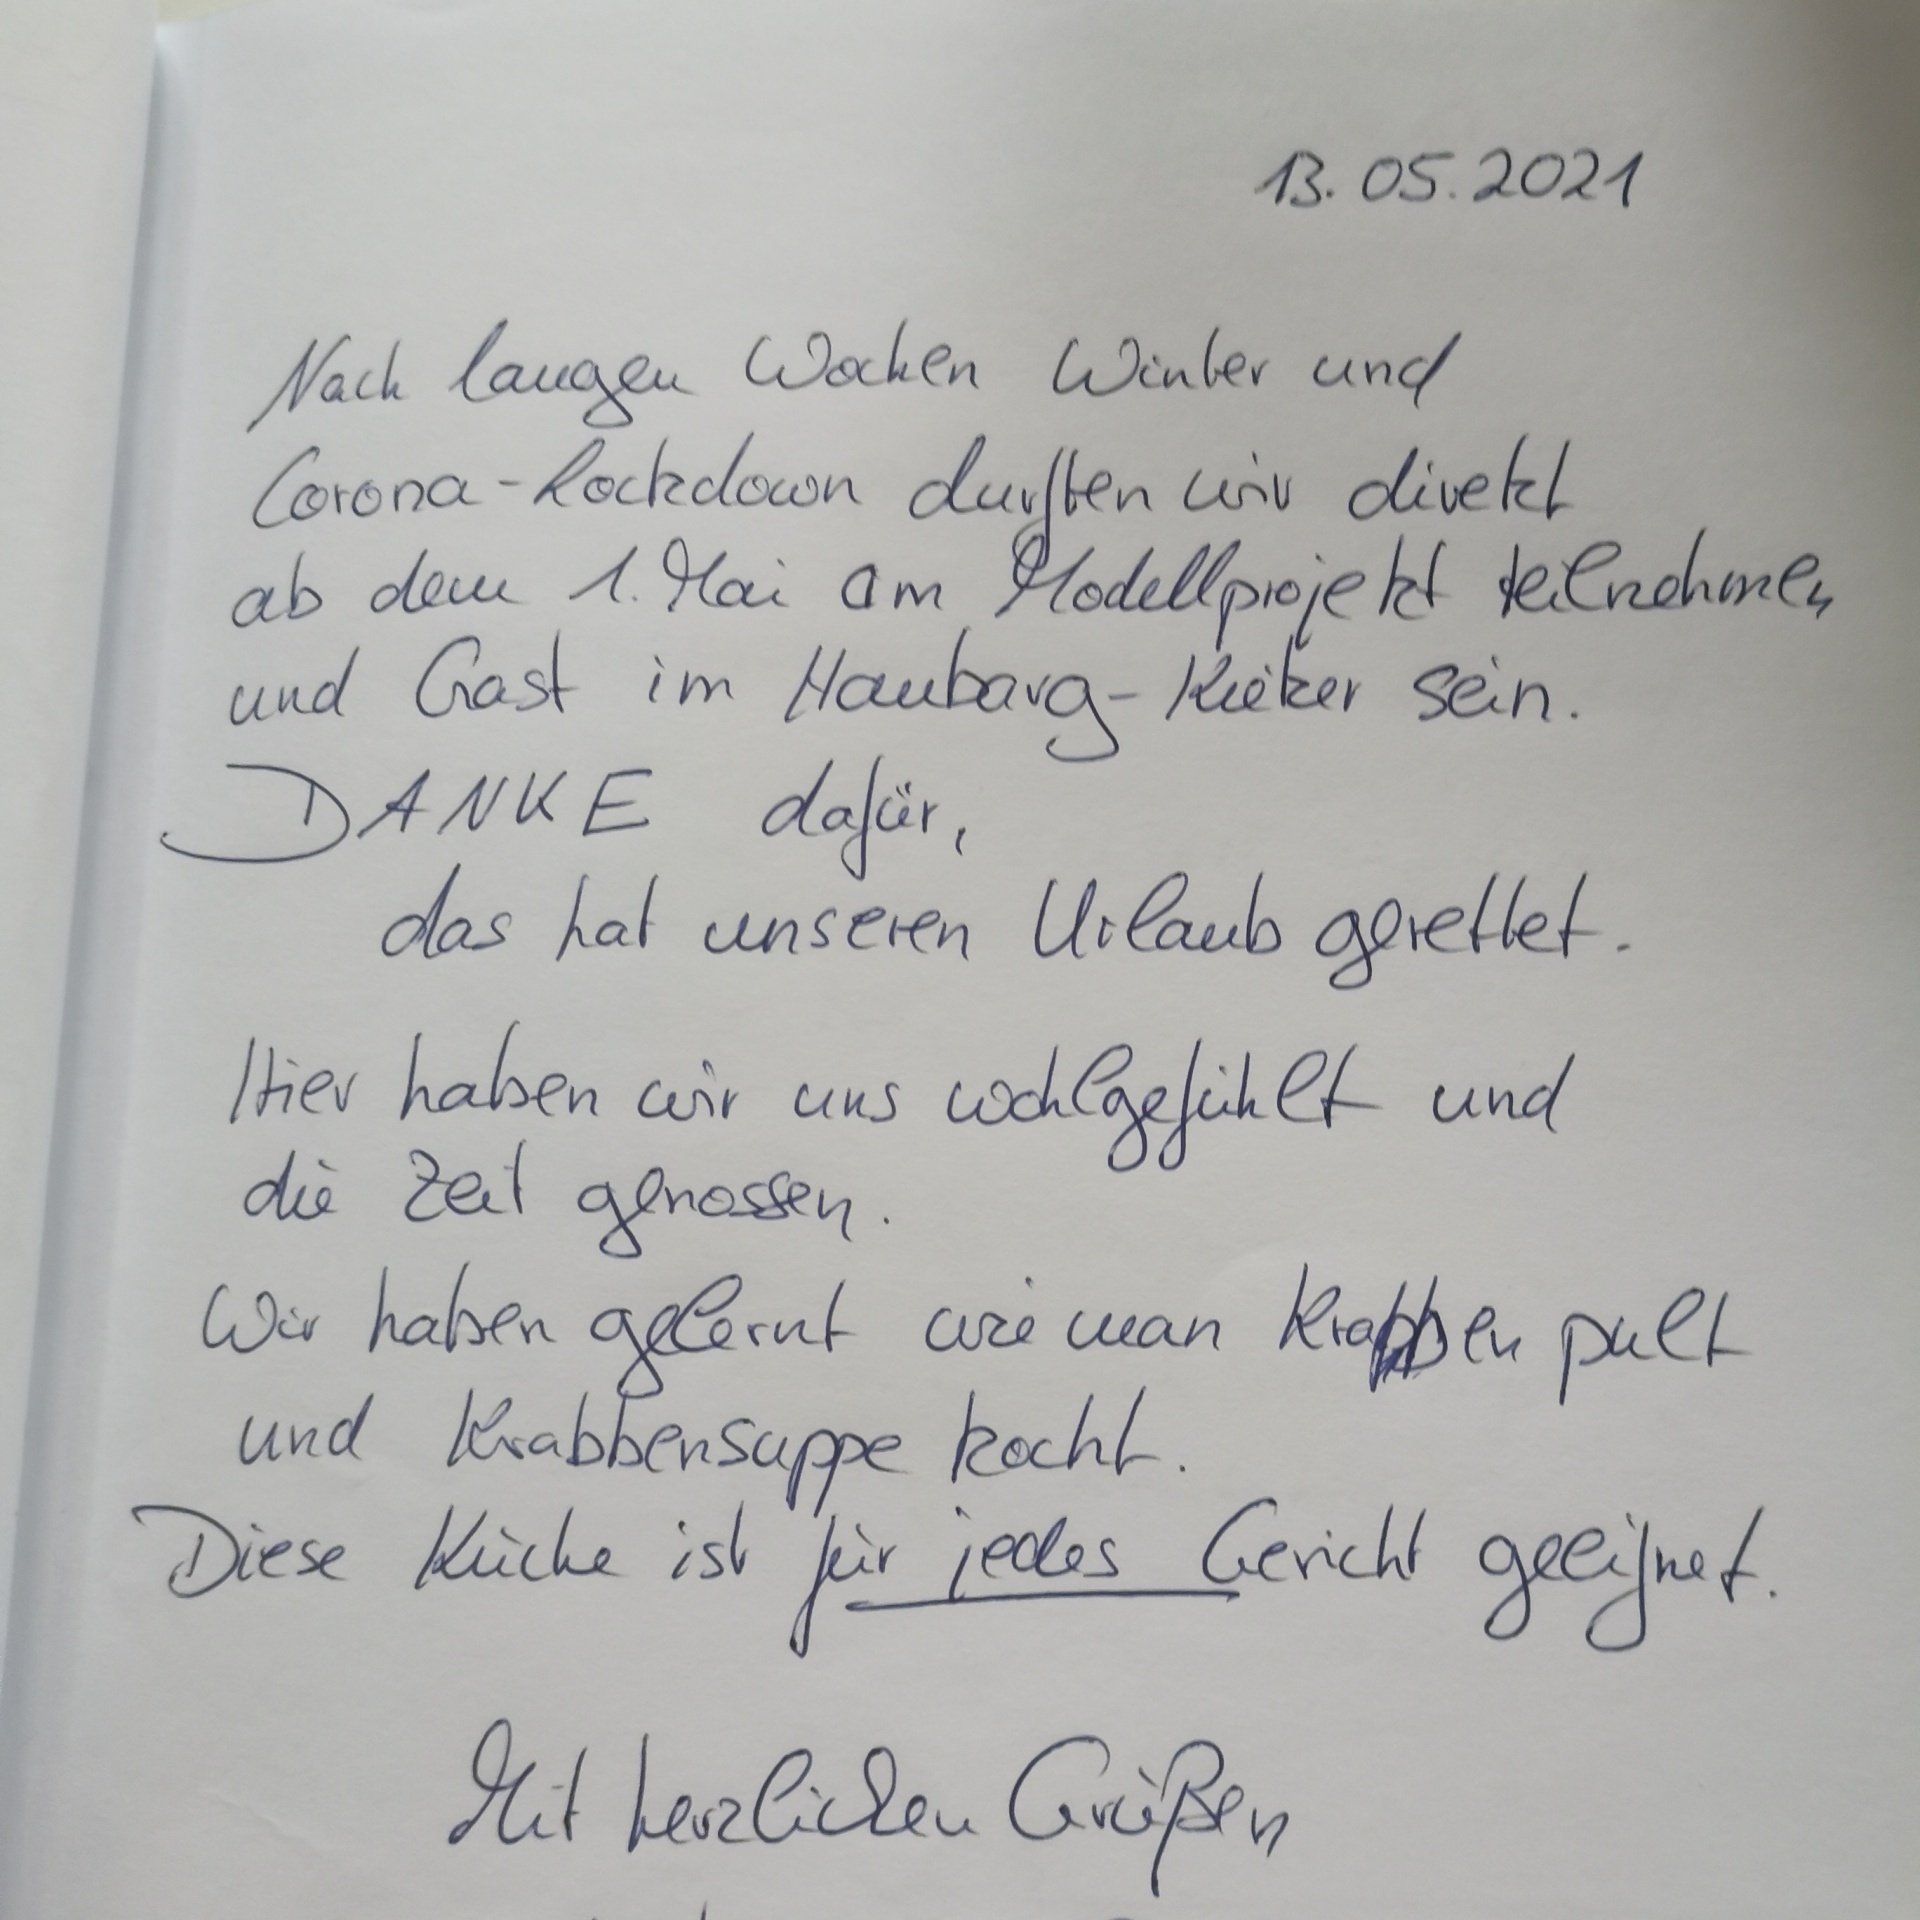 13.05.2021
Nach langen Wochen Winter und
Corona-Lockdown durften wir direkt
ab dem 1. Mai am Modellprojekt teilnehmen
und Gast im Haubarg-Kieker sein.
DANKE dafür,
das hat unseren Urlaub gerettet.
Hier haben wir uns wohlgefühlt und
die Zeit genossen.
Wir haben gelernt wie man Krabben pult
und Krabbensuppe kocht.
Diese Küche ist für jedes Gericht geeignet.
Mit herzlichen Grüßen